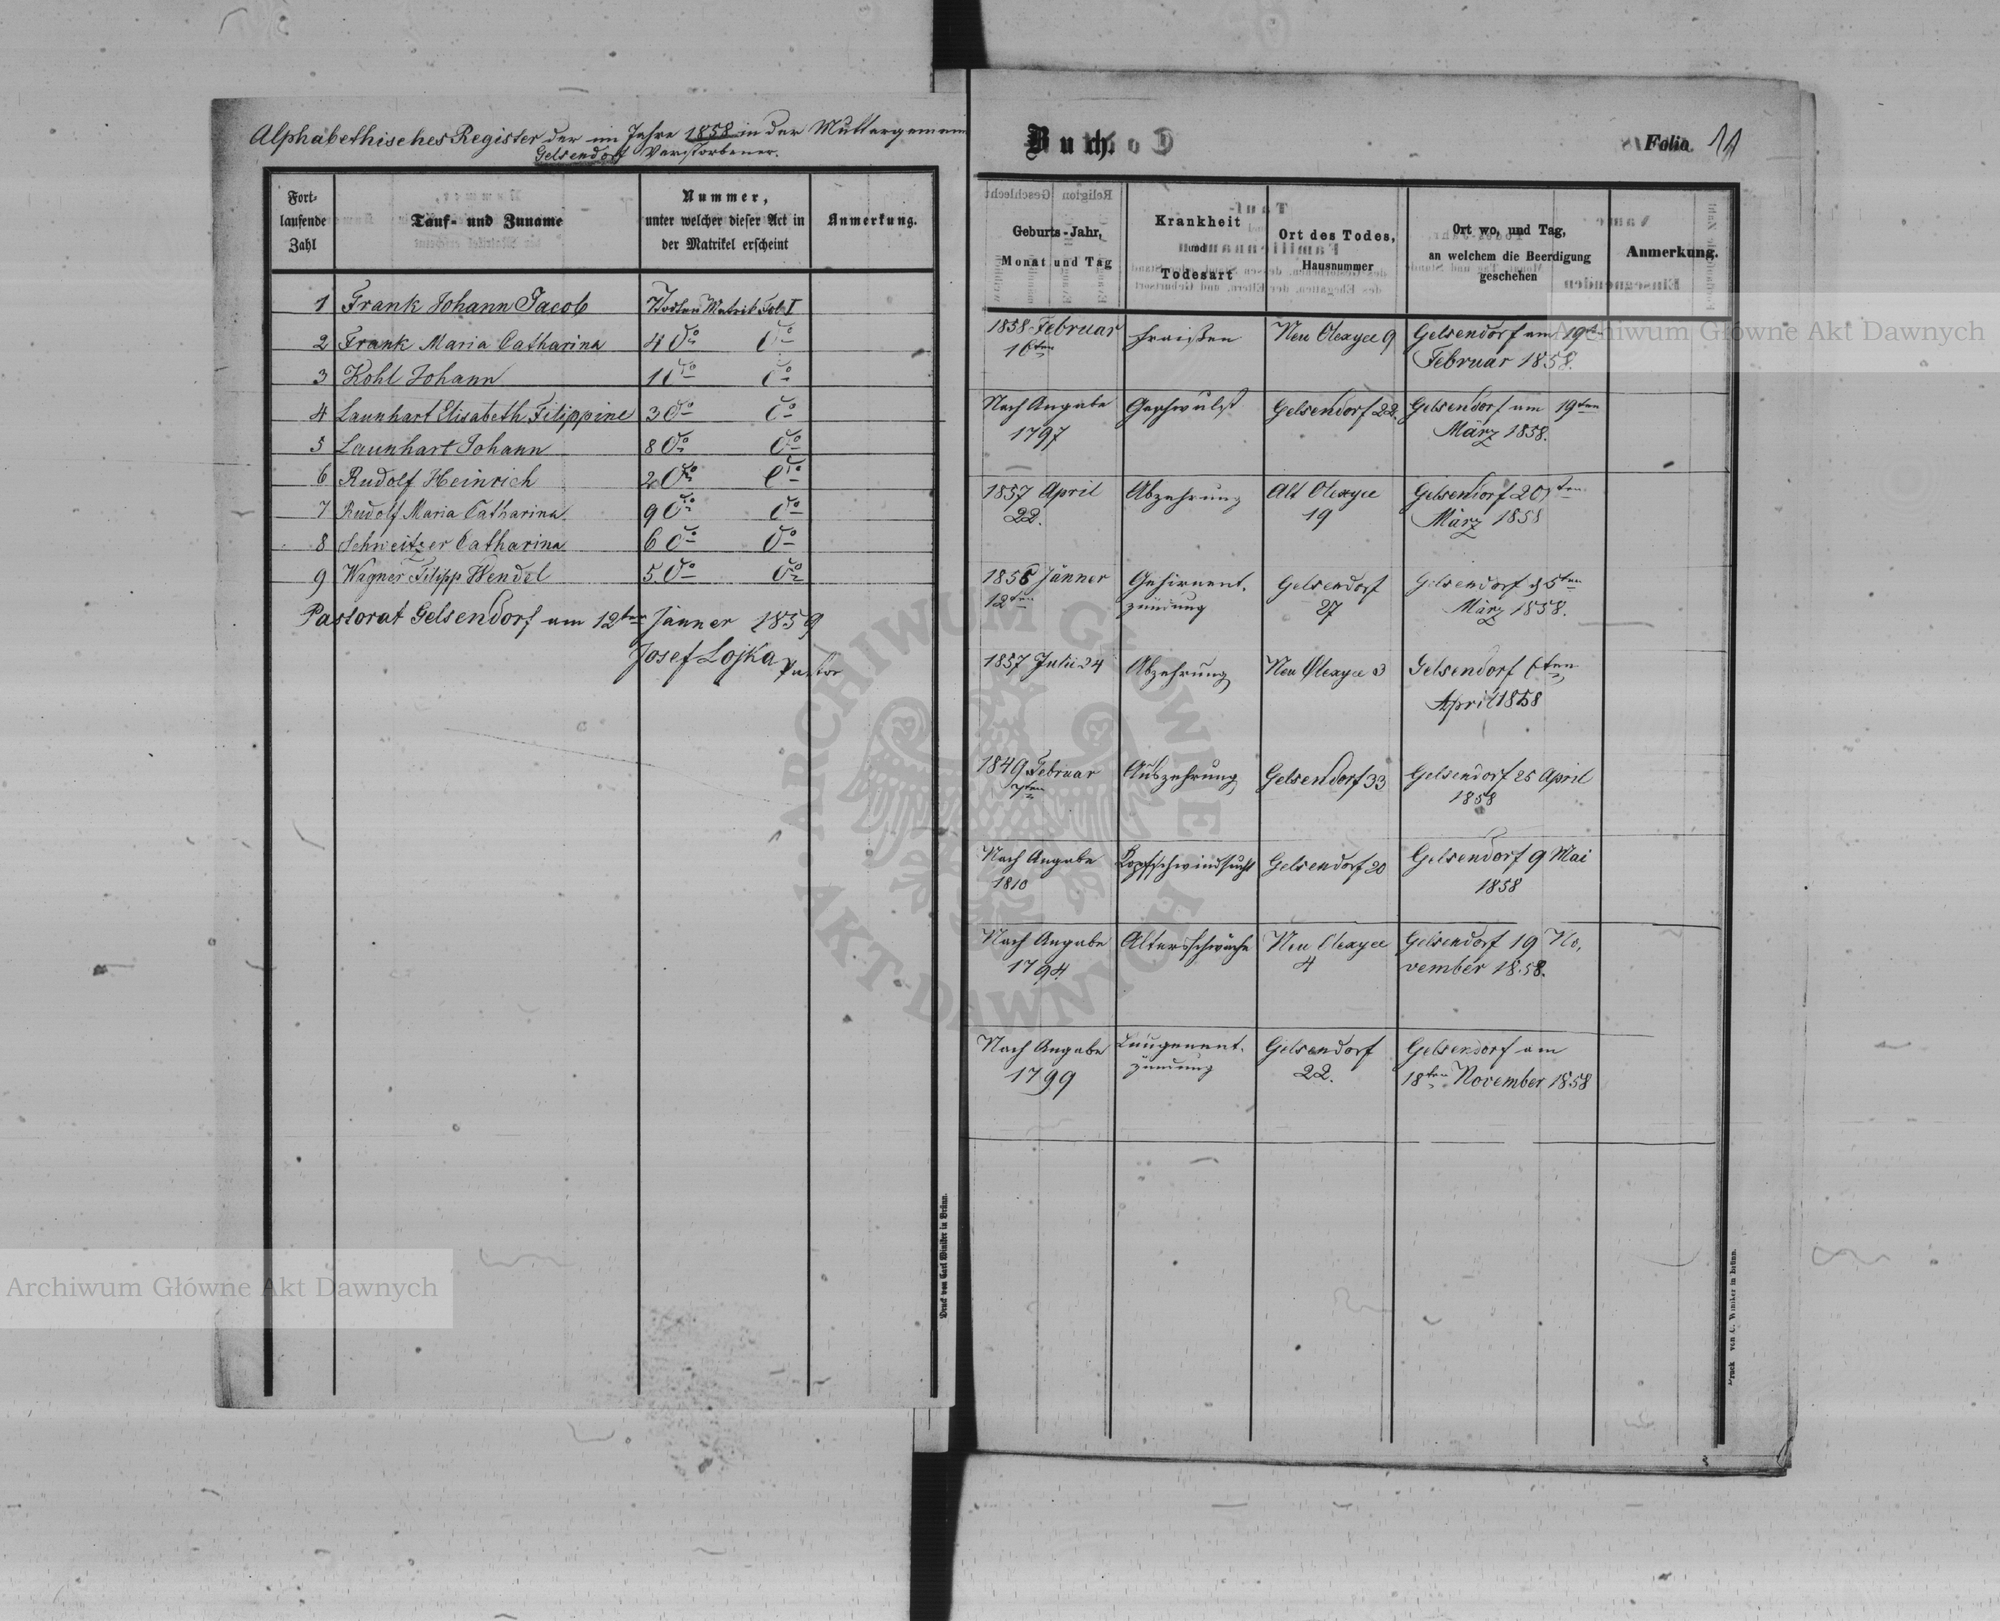 Alphabethisches Register der im Jahre 1858 in der Muttergemein
Gelsendorf Verstorbener.
Fort-
laufende
Zahl
Tauf- und Zuname
Nummer,
unter welcher dieser Act in
der Matrikel erscheint
Anmerkung.
1 Frank Johann Jacob 7 Todten Matrik Fol. I
2 Frank Maria Catharina 4 dto dto
3 Kohl Johann 1 dto dto
4 Launhart Elisabeth Filippine 3 dto dto
5 Launhart Johann 8 dto dto
6 Rudolf Heinrich 2 dto dto
7 Rudolf Maria Catharina 9 dto dto
8 Schweitzer Catharina 6 dto dto
9 Wagner Filipp Wendel 5 dto dto
Pastorat Gelsendorf am 12ten Jänner 1859
Josef Lojka Pastor
Druck von Carl Winiker in Brünn.
Buch.
Folio 11
Geburts-Jahr,
Monat und Tag
Krankheit
und
Todesart
Ort des Todes,
Hausnummer
Ort wo, und Tag,
an welchem die Beerdigung
geschehen
Anmerkung.
1858 Februar Fraißen Neu Olexyce 9 Gelsendorf am 19ten
16ten Februar 1858.
Nach Angabe Geschwulst Gelsendorf 22. Gelsendorf am 19ten
1797 März 1858.
1857 April Abzehrung Alt Olexyce Gelsendorf 20ten
22. 19 März 1858
1856 Jänner Gehirnent- Gelsendorf Gelsendorf 25ten
12ten zündung 27 März 1858.
1857 Juli 24 Abzehrung Neu Olexyce 3 Gelsendorf 6ten
April 1858
1849 Februar Auszehrung Gelsendorf 33 Gelsendorf 25 April
7ten 1858
Nach Angabe Kopfschwindsucht Gelsendorf 20 Gelsendorf 9 Mai
1810 1858
Nach Angabe Altersschwäche Neu Olexyce Gelsendorf 19 No-
1794 4 vember 1858.
Nach Angabe Lungenent- Gelsendorf Gelsendorf am
1799 zündung 22. 18ten November 1858
Druck von C. Winiker in Brünn.
Archiwum Główne Akt Dawnych
Archiwum Główne Akt Dawnych
ARCHIWUM GŁÓWNE
AKT DAWNYCH